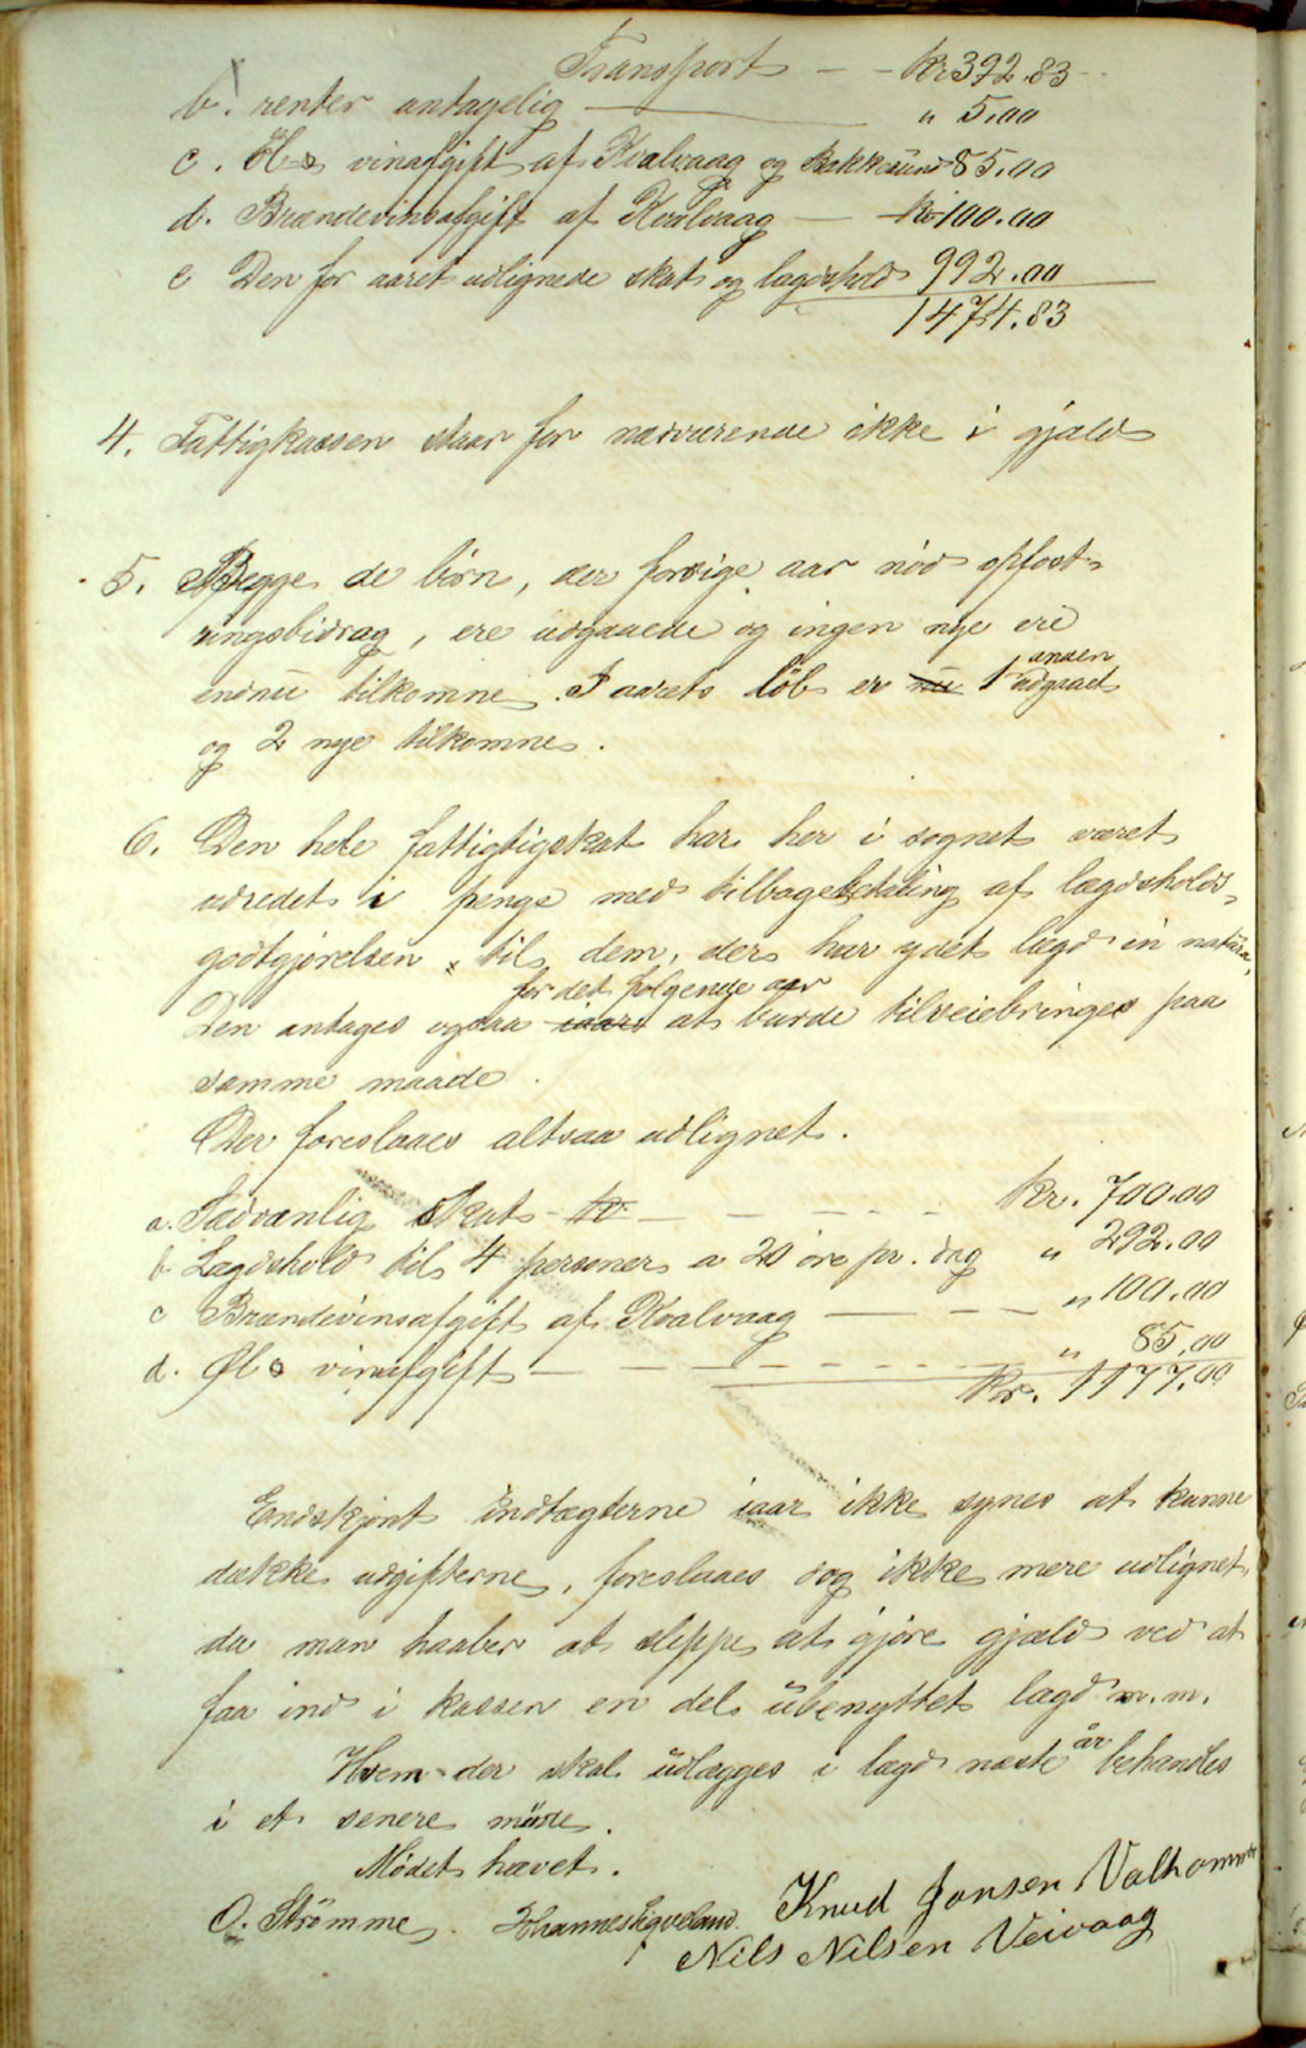 Transport - - Kr 392.83
b. renter antagelig — " 5,00
c. Øl & vinafgift af Kvalvaag og Bakkesund 85,00
d. Brændevinsafgift af Kvalvaag — kr 100.00
e Den for aaret udlignede skat og lægdshold 992.00
1474.83
4. Fattigkassen staar for nærværende ikke i gjæld
5. Begge de børn, der forrige aar nød opfost-
ringsbidrag, ere udgaaede og ingen nye ere
endnu tilkomne. I aarets løb er nu 1 anden udgaaet
og 2 nye tilkomne.
6. Den hele fattigtigskat har her i sognet været
udredet i penge med tilbagebetaling af lægdsholds-
godtgjørelsen til dem, der har ydet lægd in natura,
for det følgende aar
Den antages ogsaa iaar at burde tilveiebringes paa
samme maade.
Der foreslaaes altsaa udlignet.
a. Sædvanlig skat - kr - - - - - Kr. 700.00
b Lægdshold til 4 personer a 20 øre pr. dag " 292.00
c Brændevinsafgift af Kvalvaag — - — " 100.00
d. Øl & vinafgift — - - - - - " 85,00
Kr. 1177.00
Endskjønt indtægterne iaar ikke synes at kunne
dække udgifterne, foreslaaes dog ikke mere udlignet,
da man haaber at slippe at gjøre gjæld ved at
faa ind i kassen en del ubenyttet lægd m.m.
Hvem der skal udlægges i lægd næste år behandles
i et senere møde.
Mødet hævet.
O. Strømme. Johannes Eigveland. Knud Jonsen Valhammer
Nils Nilsen Veivaag